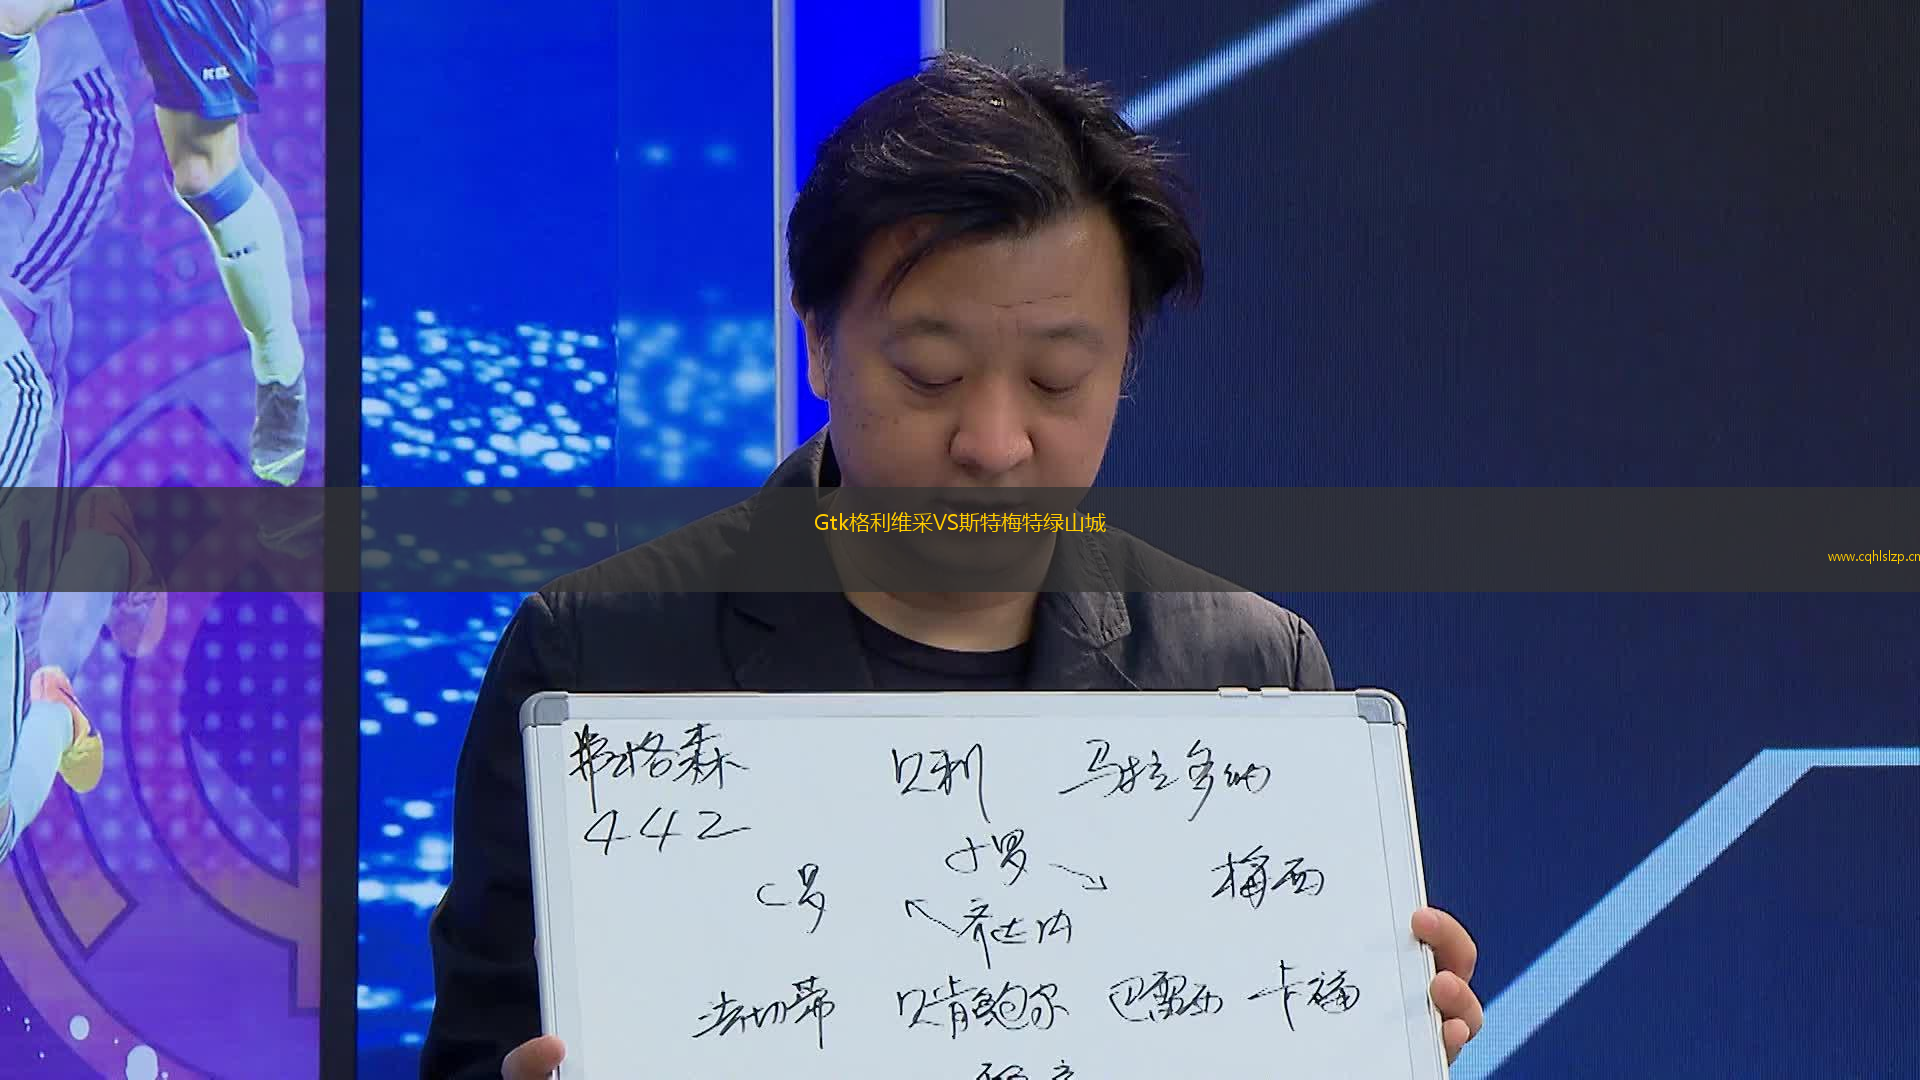 Gtk格利维采VS斯特梅特绿山城
www.cqhlslzp.cn
弗格森 贝利 马拉多纳
442
小罗
C罗 梅西
齐达内
法切蒂 贝肯鲍尔 巴雷西 卡福